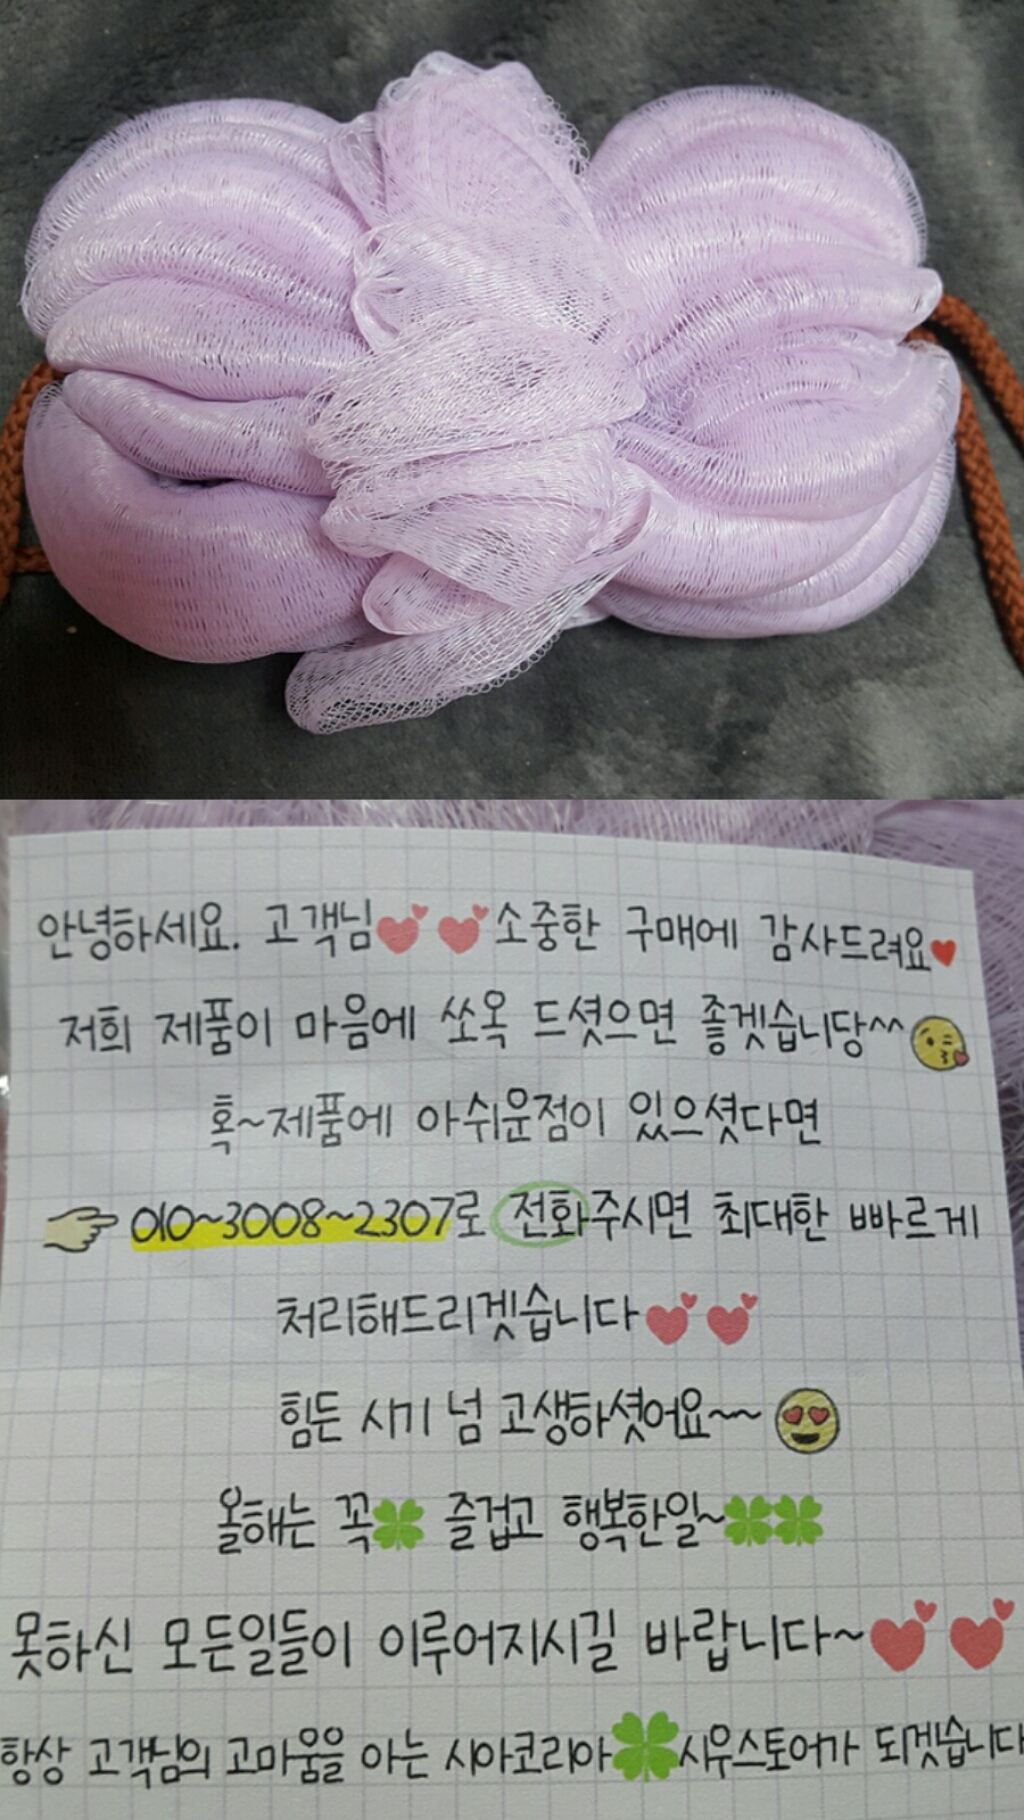 안녕하세요. 고객님 소중한 구매에 감사드려요
저희 제품이 마음에 쏘옥 드셧으면 좋겟습니당^^
혹~제품에 아쉬운점이 있으셧다면
010~3008~2307로 전화주시면 최대한 빠르게
처리해드리겟습니다
힘든 시기 넘 고생하셧어요~~
올해는 꼭 즐겁고 행복한일~
못하신 모든일들이 이루어지시길 바랍니다~
항상 고객님의 고마움을 아는 시아코리아 시우스토어가 되겟습니다